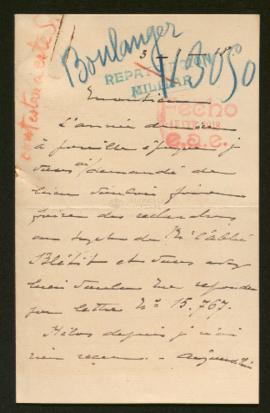 Boulanger
3050
REPA
MILITAR
Fecho
e.a.e.
Monsieur
L'année dernière
à pareille époque j
vous ai demandé de
bien vouloir faire
faire des recherches
au sujet de Mr l'abbé
et vous avez
bien voulu me répondre
par lettre No 15.767.
Hélas depuis je n'ai
rien reçu. - aujourd'hui